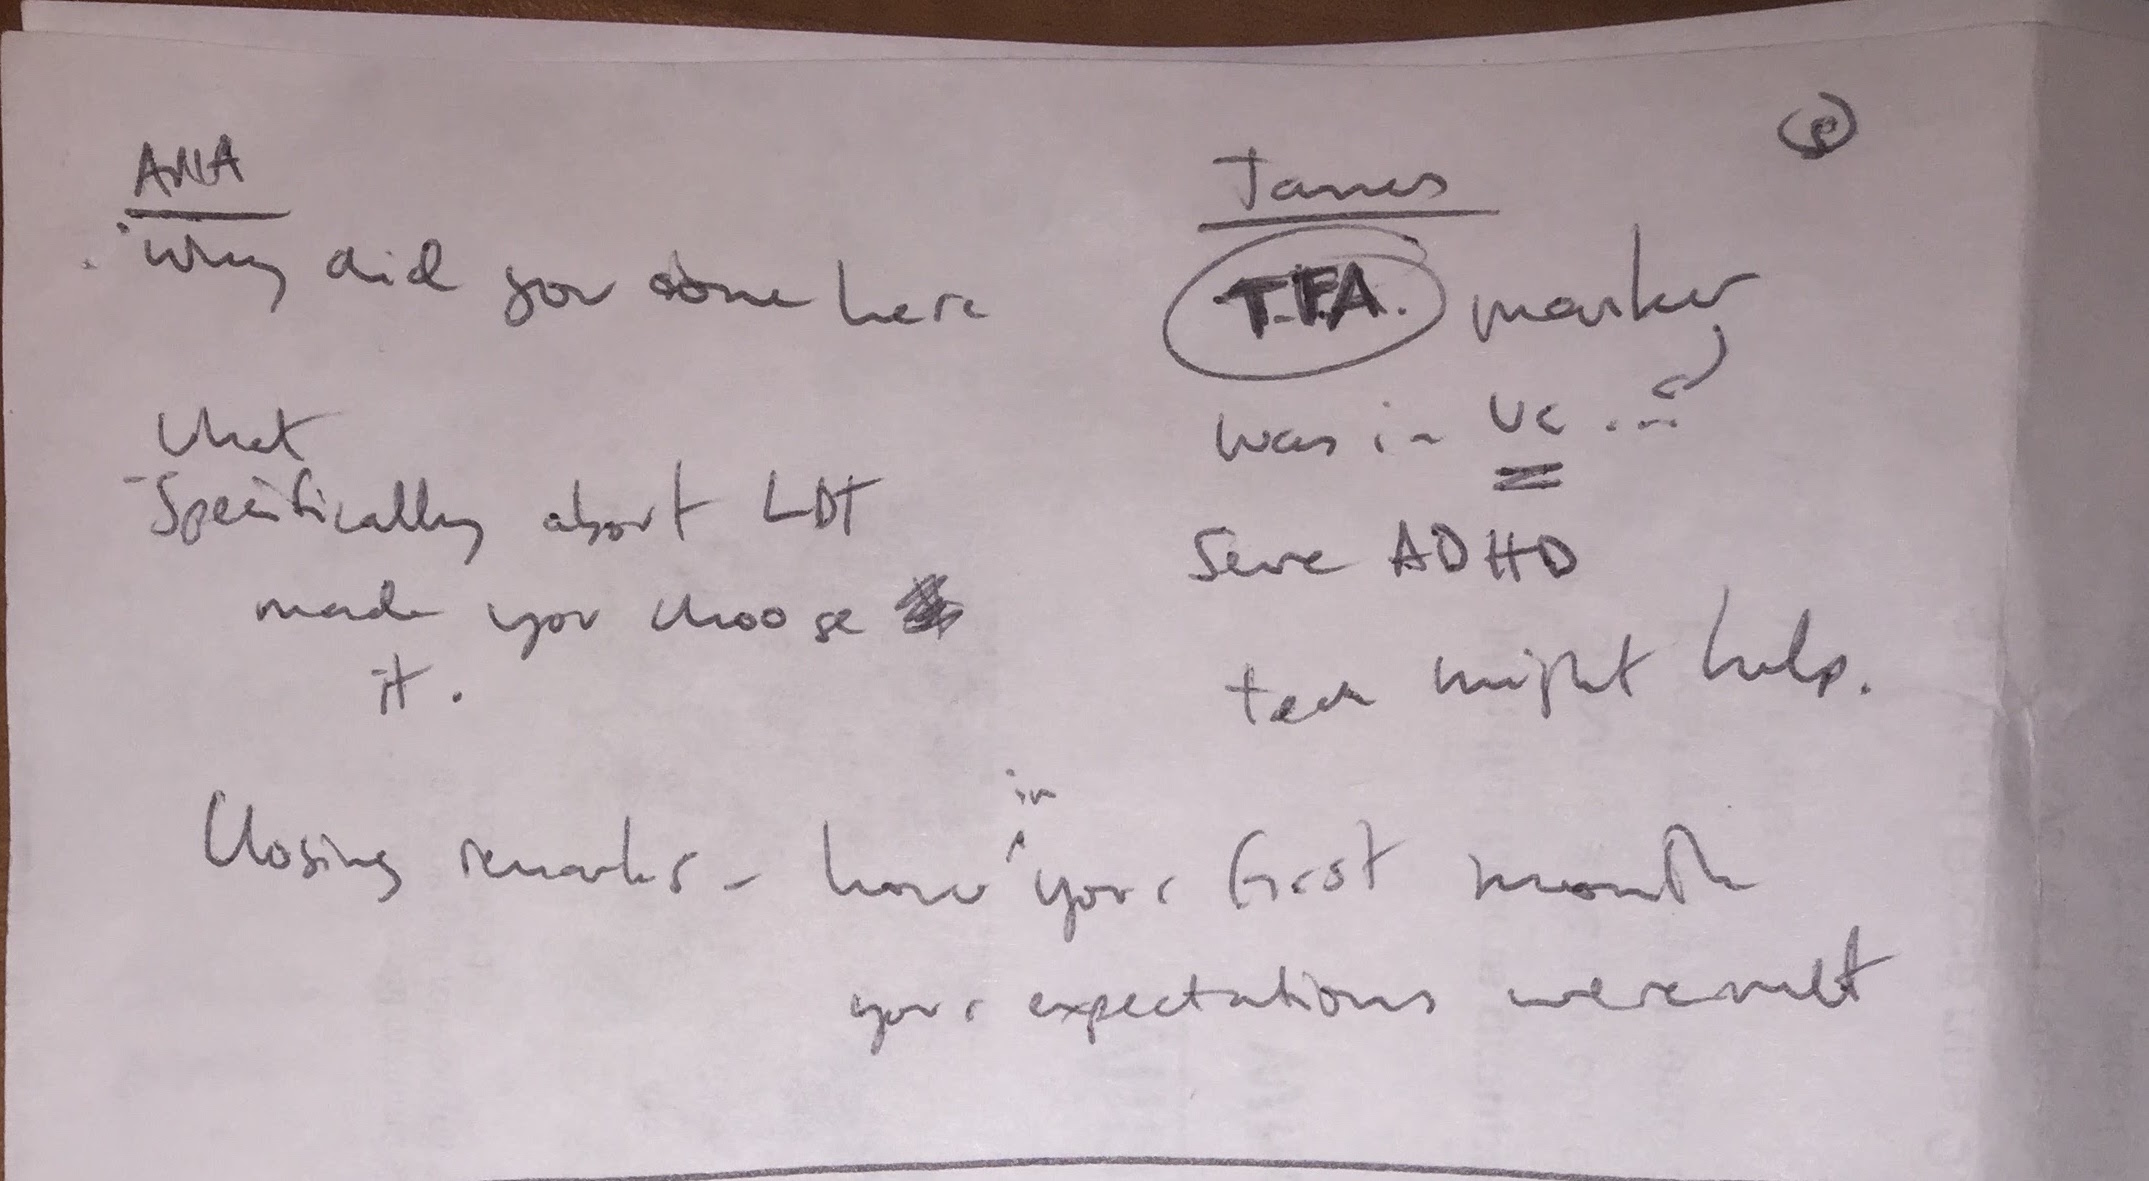 ANA
Why did you come here
What
- Specifically about LDT
made you choose
it.
James
T.F.A.
was in
ADHD
tech might help.
Closing remarks - how in your first month
your expectations were met